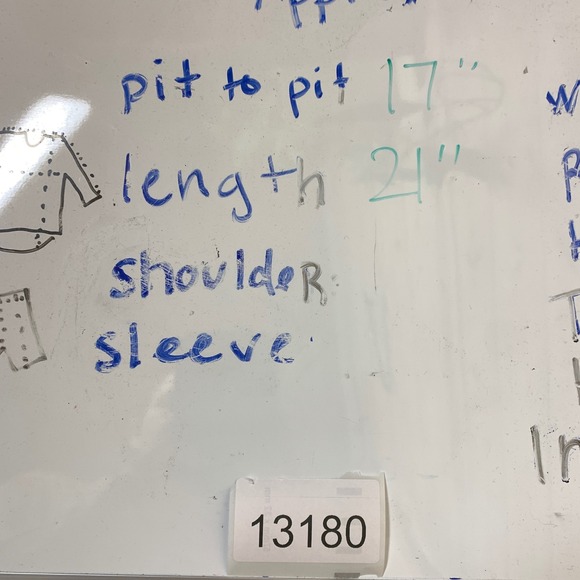 pit to pit 17"
length 21"
shouldeR
sleeve
13180